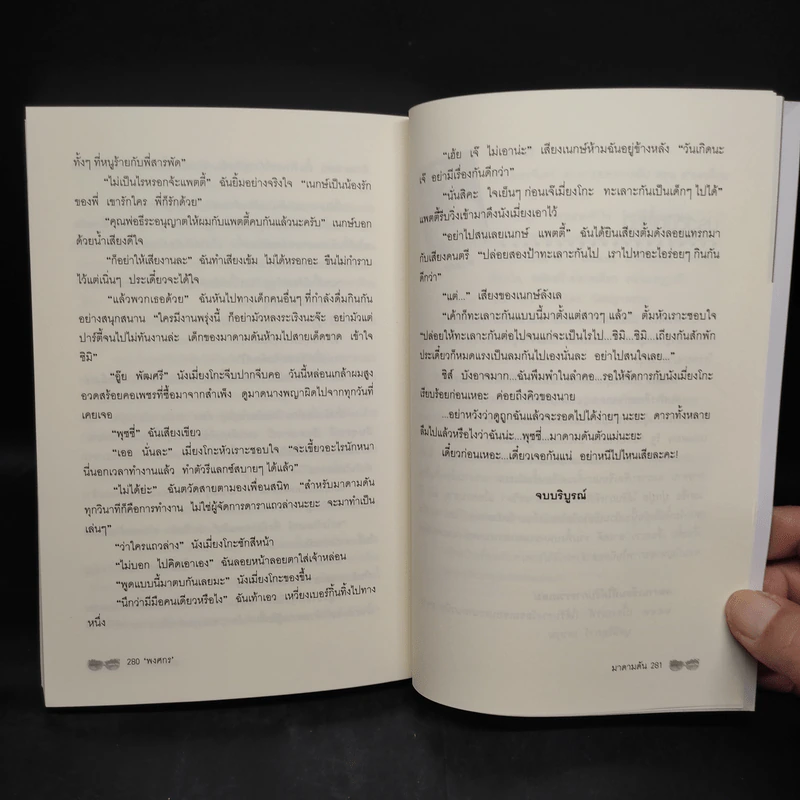 ทั้งๆ ที่หนูร้ายกับพี่สารพัด”
“ไม่เป็นไรหรอกจ้ะแพตตี้” ฉันยิ้มอย่างจริงใจ “เนกษ์เป็นน้องรัก
ของพี่ เขารักใคร พี่ก็รักด้วย”
“คุณพ่อธีระอนุญาตให้ผมกับแพตตี้คบกันแล้วนะครับ” เนกษ์บอก
ด้วยน้ำเสียงดีใจ
“ก็อย่าให้เสียงานละ” ฉันทำเสียงเข้ม ไม่ได้หรอกอะ ขืนไม่กำราบ
ไว้แต่เนิ่นๆ ประเดี๋ยวจะได้ใจ
“แล้วพวกเธอด้วย” ฉันหันไปทางเด็กคนอื่นๆ ที่กำลังดื่มกินกัน
อย่างสนุกสนาน “ใครมีงานพรุ่งนี้ ก็อย่ามัวหลงระเริงนะจ๊ะ อย่ามัวแต่
ปาร์ตี้จนไปไม่ทันงานล่ะ เด็กของมาดามดันห้ามไปสายเด็ดขาด เข้าใจ
ซิมิ”
“อู๊ย พัฒศรี” นังเมี่ยงโกะจีบปากจีบคอ วันนี้หล่อนเกล้าผมสูง
อวดสร้อยคอเพชรที่ซื้อมาจากสำเพ็ง ดูมาดนางพญาผิดไปจากทุกวันที่
เคยเจอ
“พุซซี่” ฉันเสียงเขียว
“เออ นั่นละ” เมี่ยงโกะหัวเราะชอบใจ “จะเขี้ยวอะไรนักหนา
นี่นอกเวลาทำงานแล้ว ทำตัวรีแลกซ์สบายๆ ได้แล้ว”
“ไม่ได้ย่ะ” ฉันตวัดสายตามองเพื่อนสนิท “สำหรับมาดามดัน
ทุกวินาทีก็คือการทำงาน ไม่ใช่ผู้จัดการดาราแถวล่างนะยะ จะมาทำเป็น
เล่นๆ”
“ว่าใครแถวล่าง” นังเมี่ยงโกะชักสีหน้า
“ไม่บอก ไปคิดเอาเอง” ฉันลอยหน้าลอยตาใส่เจ้าหล่อน
“พูดแบบนี้มาตบกันเลยมะ” นังเมี่ยงโกะของขึ้น
“นึกว่ามีมือคนเดียวหรือไง” ฉันเท้าเอว เหวี่ยงเบอร์กิ้นทิ้งไปทาง
หนึ่ง
280 ‘พงศกร’
“เฮ้ย เจ๊ ไม่เอาน่ะ” เสียงเนกษ์ห้ามฉันอยู่ข้างหลัง “วันเกิดนะ
เจ๊ อย่ามีเรื่องกันดีกว่า”
“นั่นสิคะ ใจเย็นๆ ก่อนเจ๊เมี่ยงโกะ ทะเลาะกันเป็นเด็กๆ ไปได้”
แพตตี้รีบวิ่งเข้ามาดึงนังเมี่ยงเอาไว้
“อย่าไปสนเลยเนกษ์ แพตตี้” ฉันได้ยินเสียงตั้มดังลอยแทรกมา
กับเสียงดนตรี “ปล่อยสองป้าทะเลาะกันไป เราไปหาอะไรอร่อยๆ กินกัน
ดีกว่า”
“แต่...” เสียงของเนกษ์ลังเล
“เค้าก็ทะเลาะกันแบบนี้มาตั้งแต่สาวๆ แล้ว” ตั้มหัวเราะชอบใจ
“ปล่อยให้ทะเลาะกันต่อไปจนแก่จะเป็นไรไป...ซิมิ...ซิมิ...เถียงกันสักพัก
ประเดี๋ยวก็หมดแรงเป็นลมกันไปเองนั่นละ อย่าไปสนใจเลย...”
ชิส์ บังอาจมาก...ฉันพึมพำในลำคอ...รอให้จัดการกับนังเมี่ยงโกะ
เรียบร้อยก่อนเหอะ ค่อยถึงคิวของนาย
...อย่าหวังว่าดูถูกฉันแล้วจะรอดไปได้ง่ายๆ นะยะ ดาราทั้งหลาย
ลืมไปแล้วหรือไงว่าฉันน่ะ...พุซซี่...มาดามดันตัวแม่นะยะ
เดี๋ยวก่อนเหอะ...เดี๋ยวเจอกันแน่ อย่าหนีไปไหนเสียละคะ!
จบบริบูรณ์
มาดามดัน 281